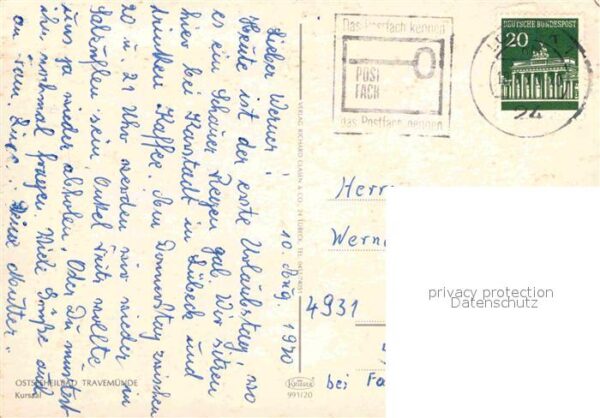 Lieber Werner!
Heute ist der erste Urlaubstag, wo
es ein Schauer Regen gab. Wir sitzen
hier bei Karstadt in Lübeck und
trinken Kaffee. Am Donnerstag zwischen
20 u. 21 Uhr werden wir wieder in
sein, Onkel Fritz wollte
uns ja wieder abholen. Oder Du müsstest
ihn nochmal fragen. Viele Grüße auch
an Deine Mutter.
10. Aug. 1970
VERLAG RICHARD CLASEN & CO., 24 LÜBECK, TEL.
OSTSEEHEILBAD TRAVEMÜNDE
Kursaal
Krüger
991/20
Das Postfach kennen
POST
FACH
das Postfach nennen
DEUTSCHE BUNDESPOST
20
24
Herrn
Wern
4931
bei Fa
privacy protection
Datenschutz